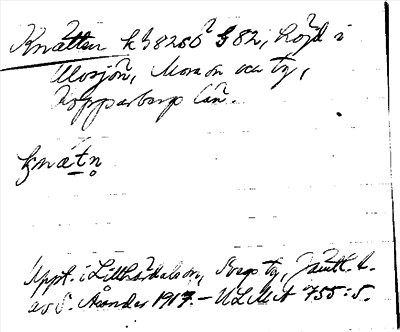 Knätten kB 8286 § 82, höjd i
Morsjön, Mora sn och tg,
Kopparbergs län.
knätn̥
Uppt. i Lillhärdals sn, Svegs tg, Jämtl. l.
av S. Ålander 1917. - ULMA 755:5.